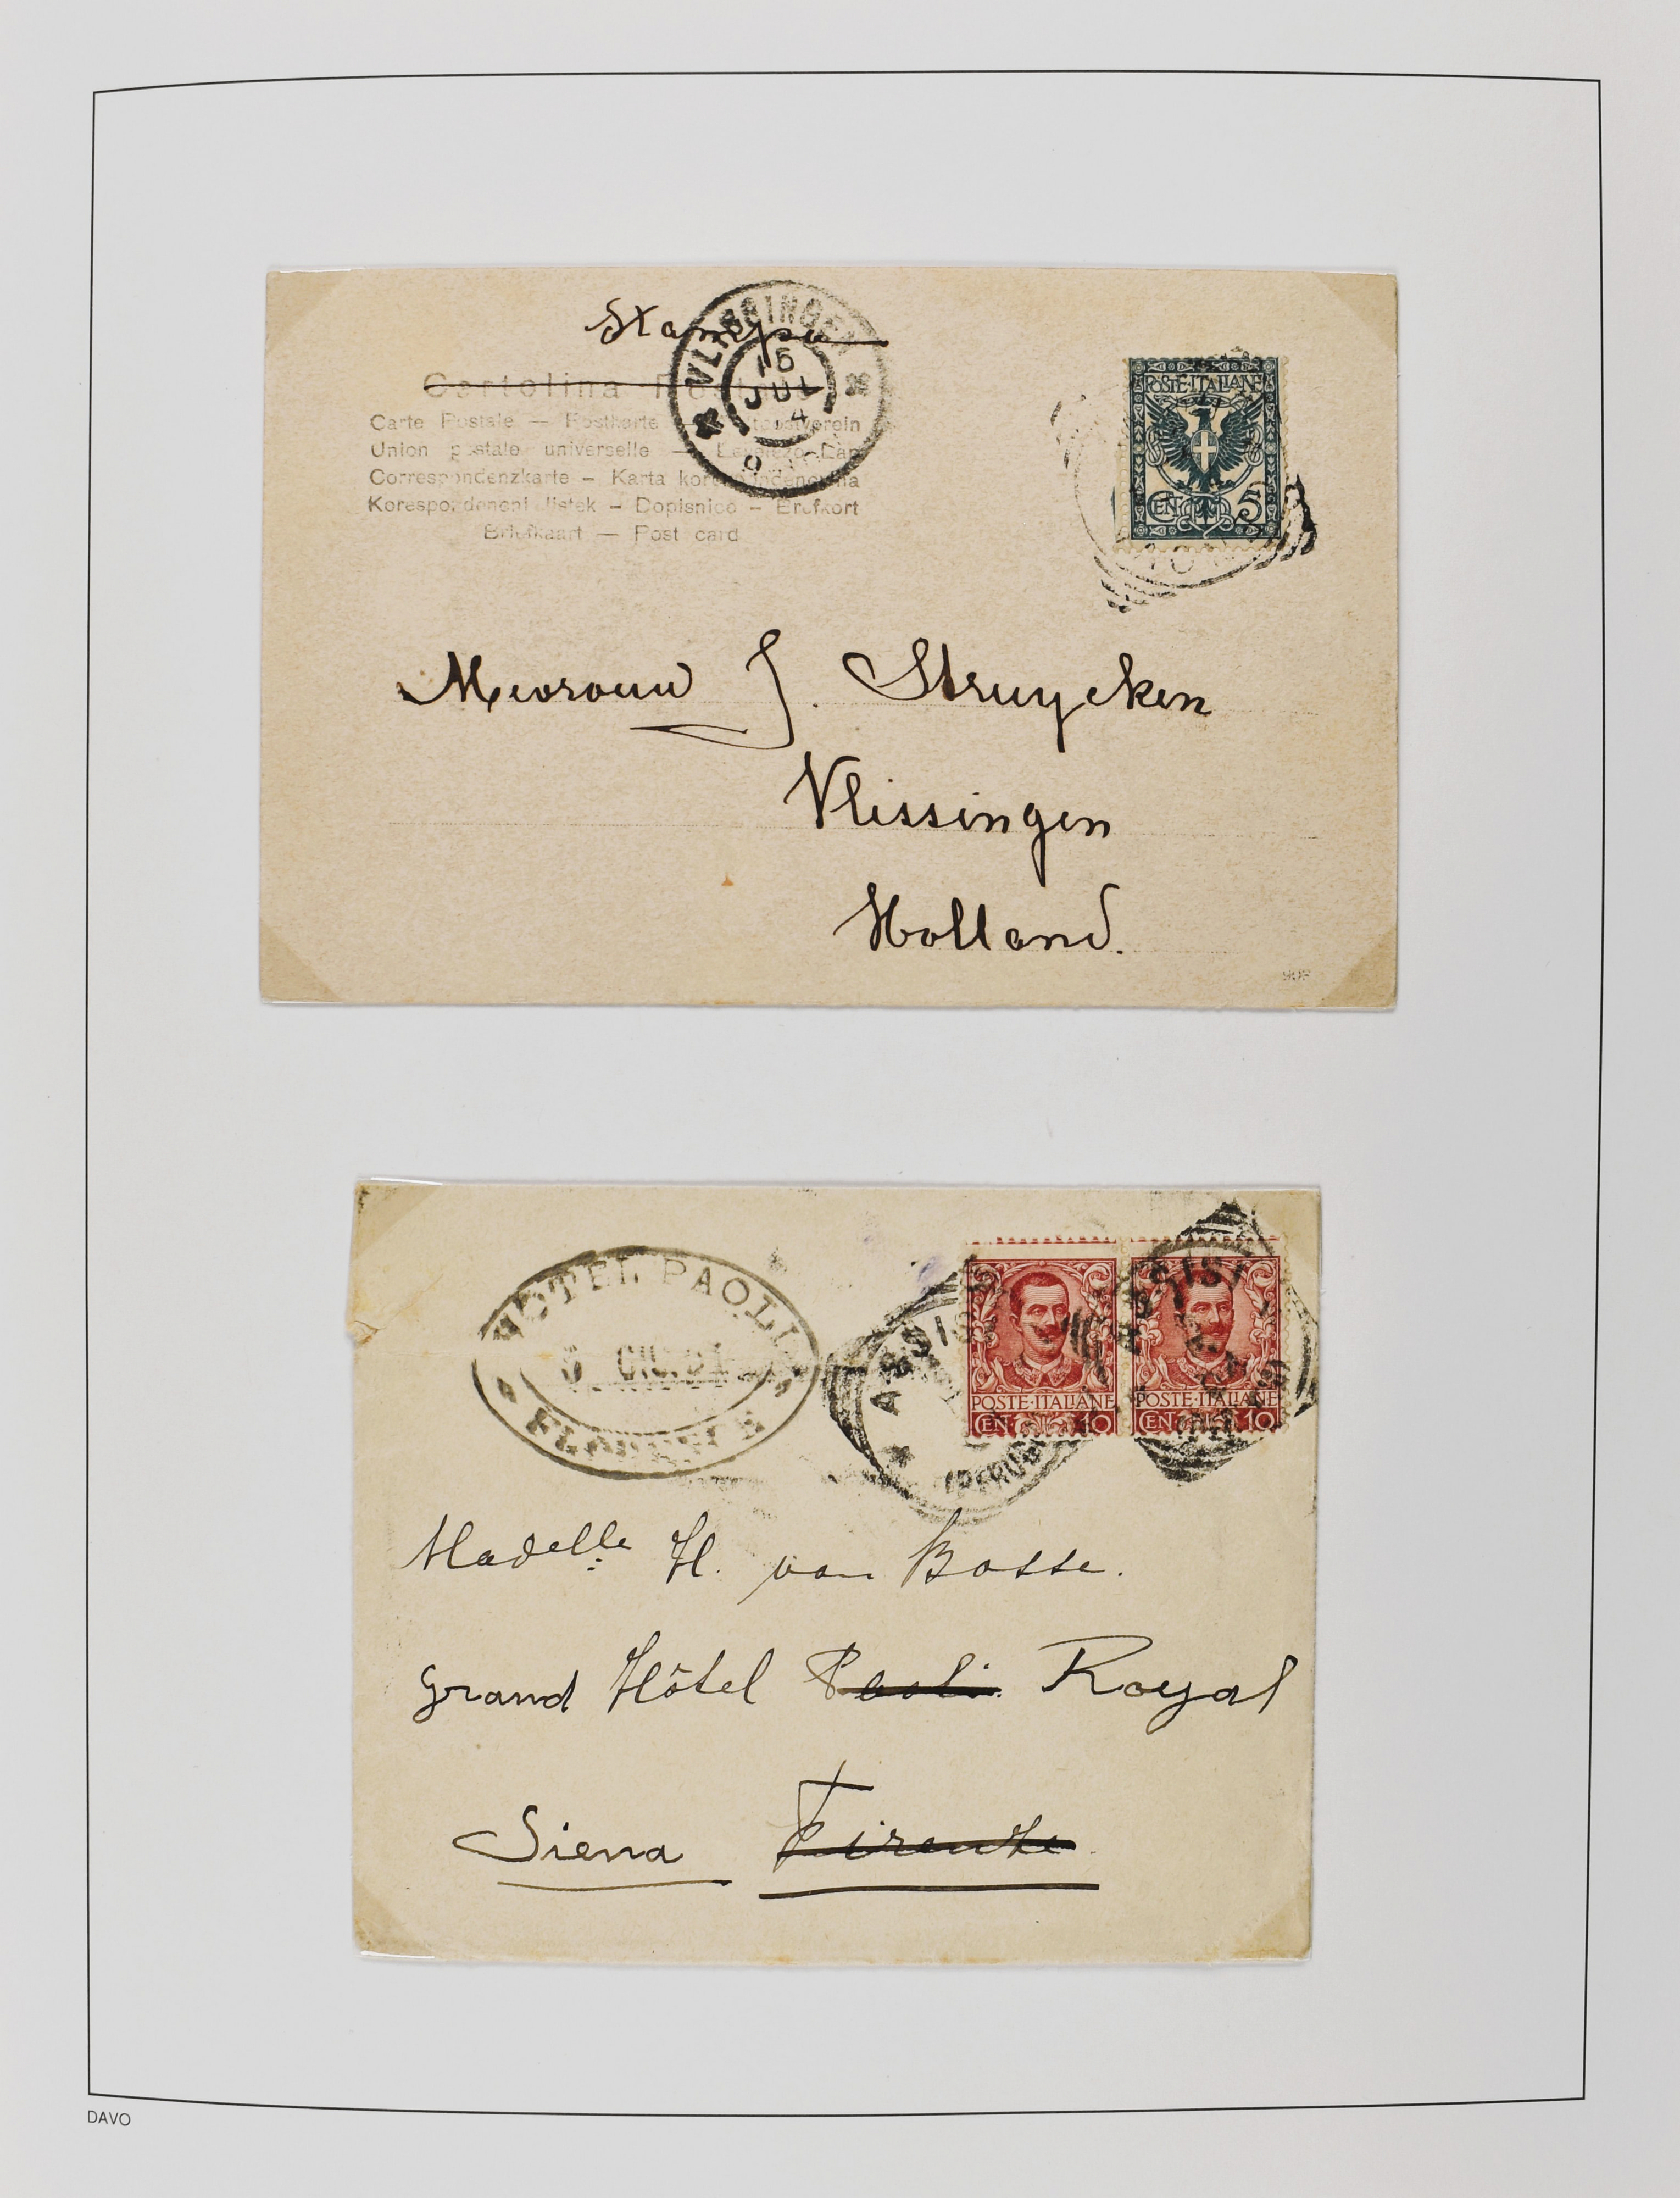 Stampa
VLISSINGEN
15
JUL
Cartolina
Carte Postale — Postkarte —
Union postale universelle —
Correspondenzkarte – Karta
listek – Dopisnice –
Briefkaart — Post card
POSTE·ITALIANE
CEN 5
Mevrouw J. Struycken
Vlissingen
Holland.
HOTEL PAOLI
5 GIU. 01
FLORENCE
ASSISI
ASSISI
POSTE·ITALIANE
CEN 10
POSTE·ITALIANE
CEN 10
Madelle H. van Bosse.
Grand Hôtel Paoli Royal
Siena Firenze
DAVO